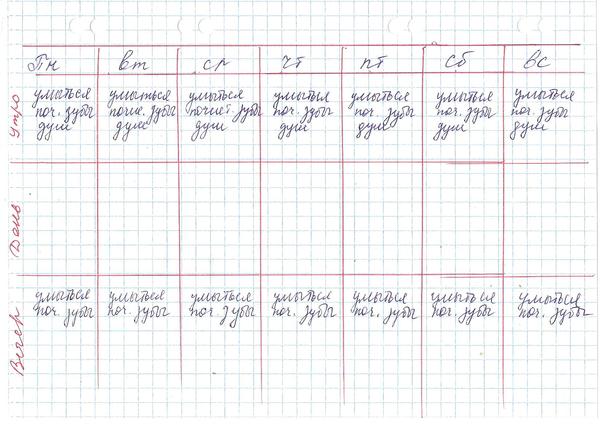 Пн вт ср чт пт сб вс
Утро
умыться умыться умыться умыться умыться умыться умыться
поч. зубы почис. зубы почист. зубы поч. зубы поч. зубы поч. зубы поч. зубы
душ душ душ душ душ душ душ
День
Вечер
умыться умыться умыться умыться умыться умыться умыться
поч. зубы поч. зубы поч. зубы поч. зубы поч. зубы поч. зубы поч. зубы